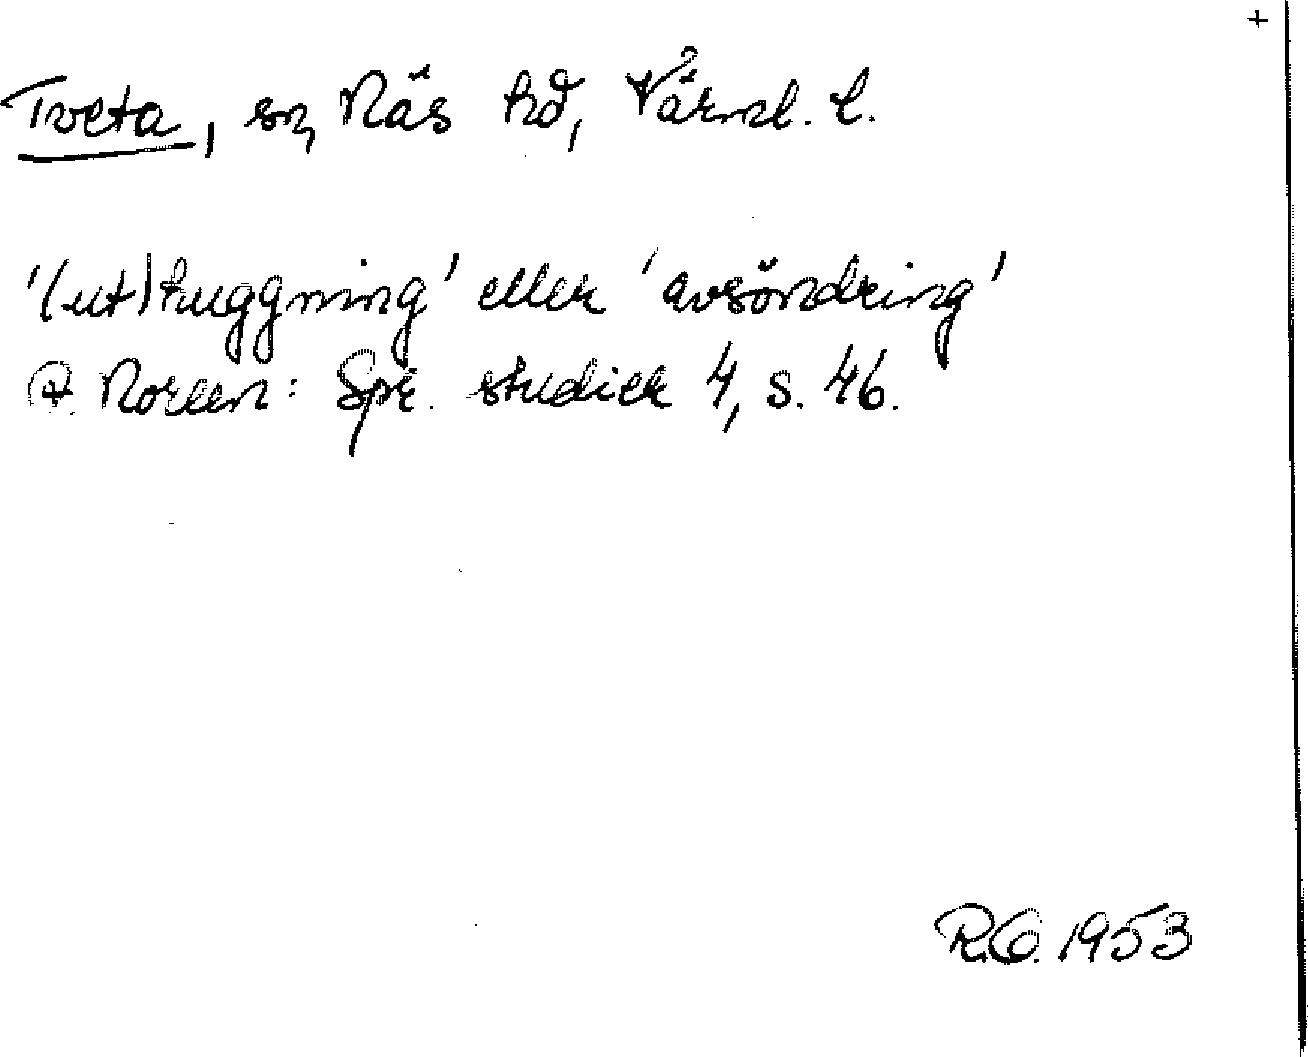 +
Tveta, sn, Näs hd, Värml. l.
'(ut)huggning' eller 'avsöndring'
A. Noreen: Spr. studier 4, s. 46.
1953